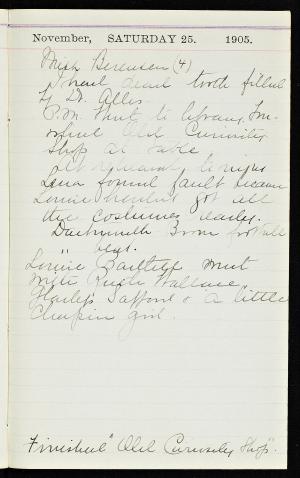 November, SATURDAY 25. 1905.
Miss Berensen (4)
I had dead tooth filled
by Dr. Allis.
P.M. Went to library, fin-
ished Old Curiosity
Shop at Lake
at rehearsal,
Lena found fault because
Louise hadn't got all
the costumes early.
Dartmouth Brown football
beat.
Louise Bartlett went
with Ruth Wallace
Gladys Safford & a little
Chapin girl.
Finished "Old Curiosity Shop".